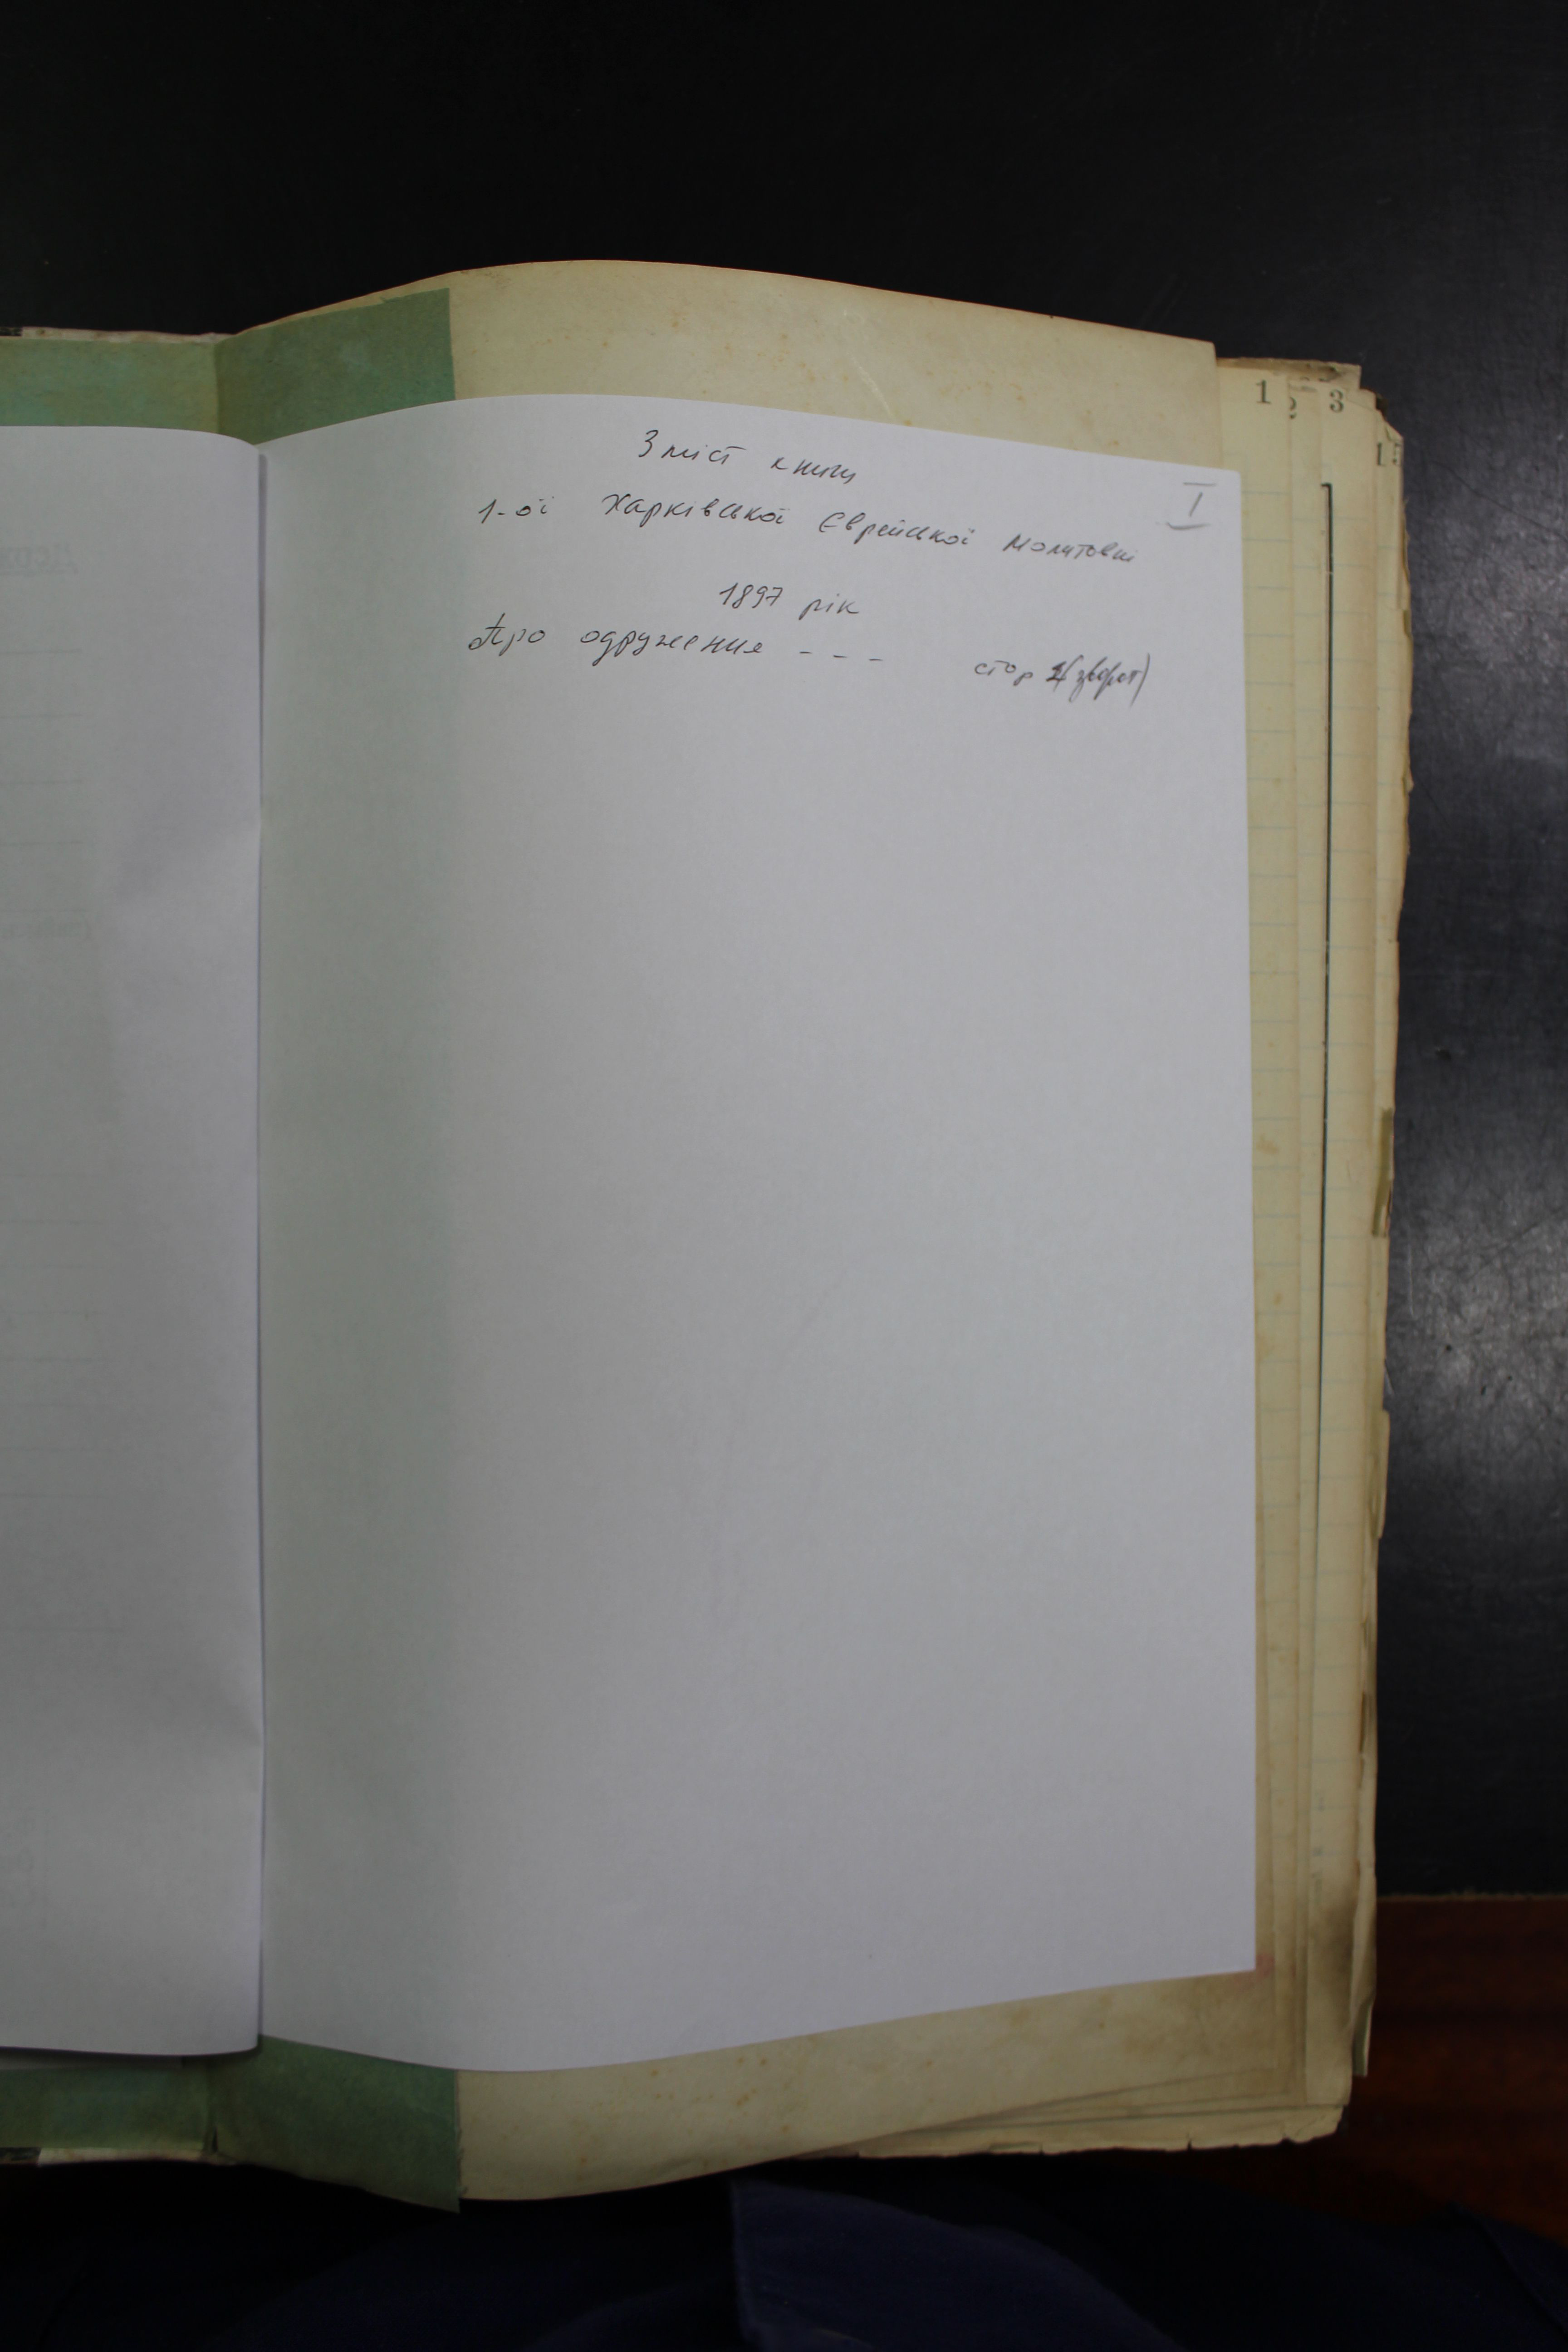 Зміст книги
I
1-ої Харківської Єврейської молитовні
1897 рік
Про одруження - - -    стор (зворот)
1
2
3